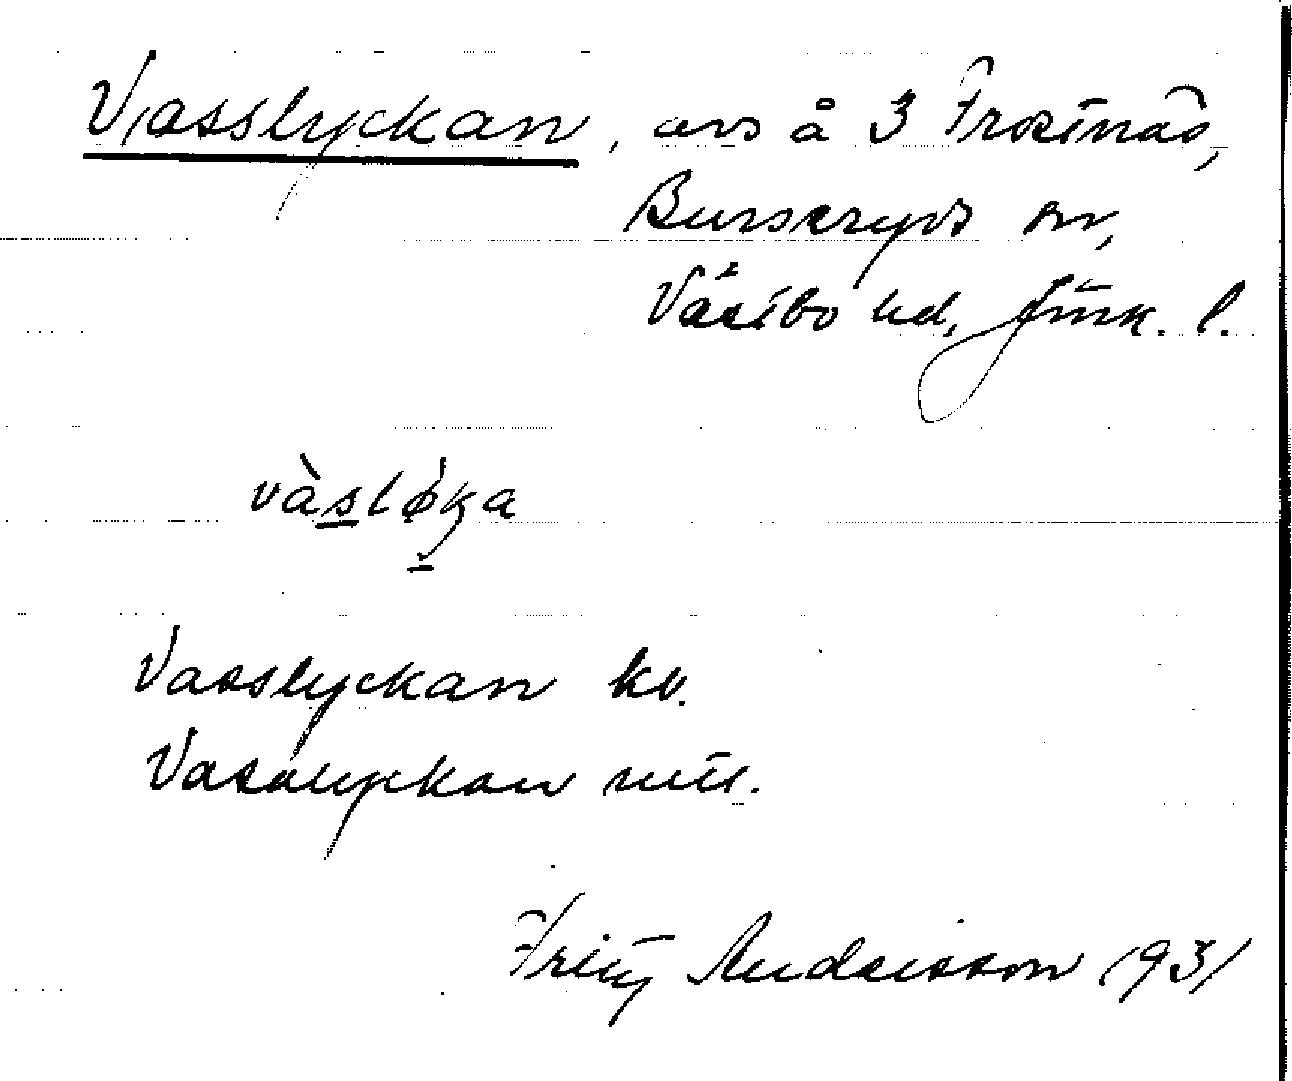 Vasslyckan, avs å 3 Frostnäs,
Burseryds sn,
Västbo hd, Jönk. l.
vàsløka
Vasslyckan kv.
Vasslyckan mtl.
Fritz Andersson 1931